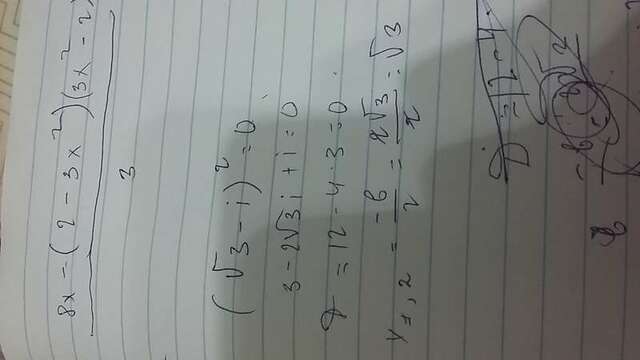 8x - (2 - 3x²)(3x² - 2)
3
(√3 - i)² = 0
3 - 2√3 i + i = 0
D = 12 - 4·3 = 0
Y₁,₂ = -b/2 = 2√3/2 = √3
D = 12 - 4